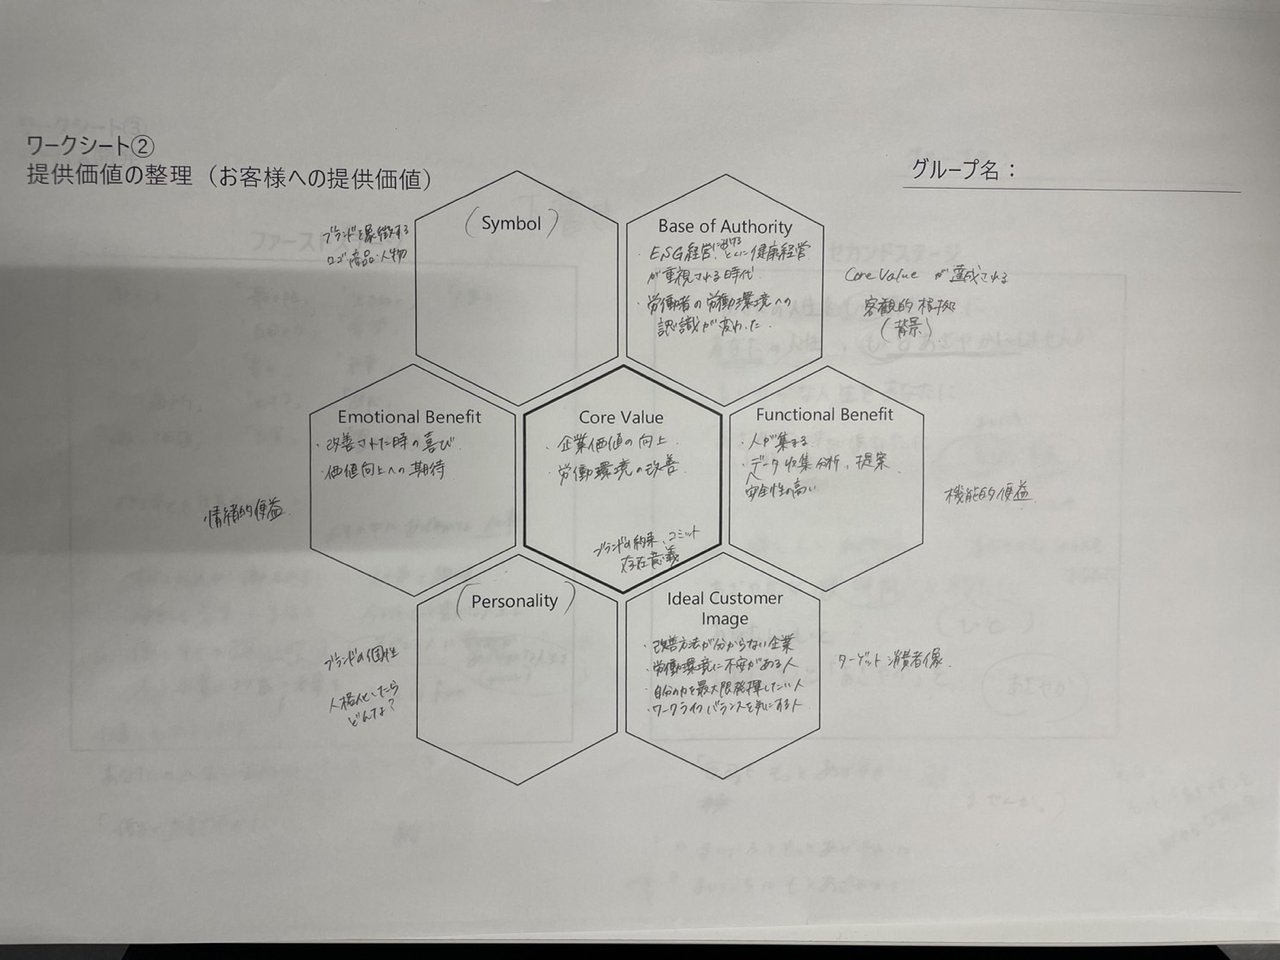 ワークシート②
提供価値の整理（お客様への提供価値）
グループ名：
(Symbol)
ブランドを象徴する
ロゴ・商品・人物
Base of Authority
・ESG経営、健康経営
が重視される時代
・労働者の労働環境への
認識が変わった。
Core Value が達成される
客観的根拠
(背景)
Emotional Benefit
・改善された時の喜び
・価値向上への期待
情緒的便益
Core Value
・企業価値の向上
・労働環境の改善
ブランドの約束、コミット
存在意義
Functional Benefit
・人が集まる
・データ収集分析、提案
安全性の高い
機能的便益
(Personality)
ブランドの個性
人格化したら
どんな？
Ideal Customer
Image
・改善方法が分からない企業
・労働環境に不安がある人
・自分の力を最大限発揮したい人
・ワークライフバランスを気にする人
ターゲット消費者像